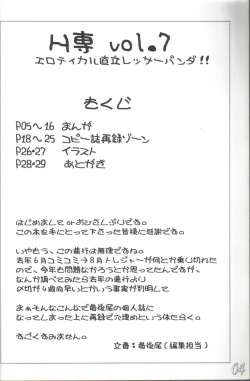 H専 vol.7
エロティカル直立レッサーパンダ!!
もくじ
P05~16 まんが
P18~25 コピー誌再録ゾーン
P26・27 イラスト
P28・29 あとがき
はじめまして or おひさしぶりです。
この本を手にとって下さった皆様に感謝です。
いやもう、この進行は無理ですね。
去年6月コミコミ→8月トレジャーが何とか乗り切れた
ので、今年も問題なかろうとか思ってたんですが、
なんか調べてみたら去年の進行より
〆切が4週の早いとかいう事実が判明して
まぁそんなこんなで最後尾の個人誌に
なってしまった上に再録で穴埋めという体たらく。
もざくざみません。
文責:最後尾(編集担当)
04